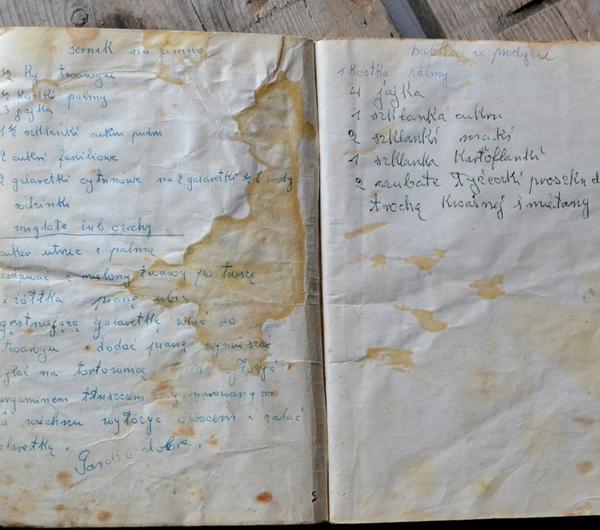 sernik na zimno
½ kg twarogu
½ kostki palmy
3 jajka
1 ½ szklanki cukru pudru
2 cukri faniliowe
2 galaretki cytrinowe na 2 galaretki ½ l wody
rodzinki
migdałe lub orichy
cukier utrzec z palmą
dodawać z mielony twarog po troszę
i żółtka pianę ubic
gęstnającą galaretkę wlac do
twarogu dodać pianę wymieszac
wylac na tortownią wyłożyć
pergaminem tłuszcem
na wiechrzu wyłozyc owocem i zalać
galaretką.
Bardzo dobre.
babka w prodyżu
1 kostka palmy
4 jajka
1 szklanka cukru
2 szklanki maki
1 szklanka Kartoflanki
2 czubate łyżeczki proszku d
trochę Kwasnej śmietany